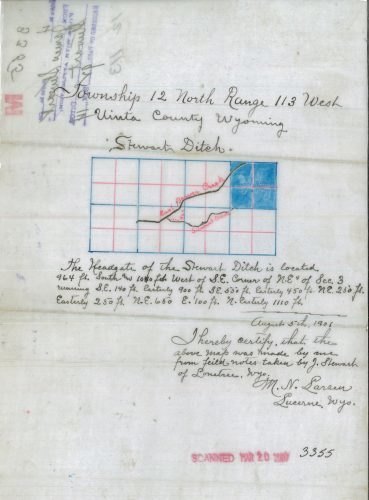 Township 12 North Range 113 West
Uinta County Wyoming
Stewart Ditch.
The Headgate of the Stewart Ditch is located
464 ft South and 1040 feet West of S.E. Corner of N.E¼ of Sec. 3
running S.E. 140 ft Easterly 90 ft S.E. 550 ft Easterly 450 ft N.E. 250 ft.
Easterly 250 ft. N.E. 650 E. 100 ft. N. Easterly 1100 ft
August 5th, 1905
I hereby certify, that the
above map was made by me
from field notes taken by J. Stewart
of Lonetree, Wyo.
M. N. Larsen
Lucerne Wyo.
SCANNED MAR 20
3355